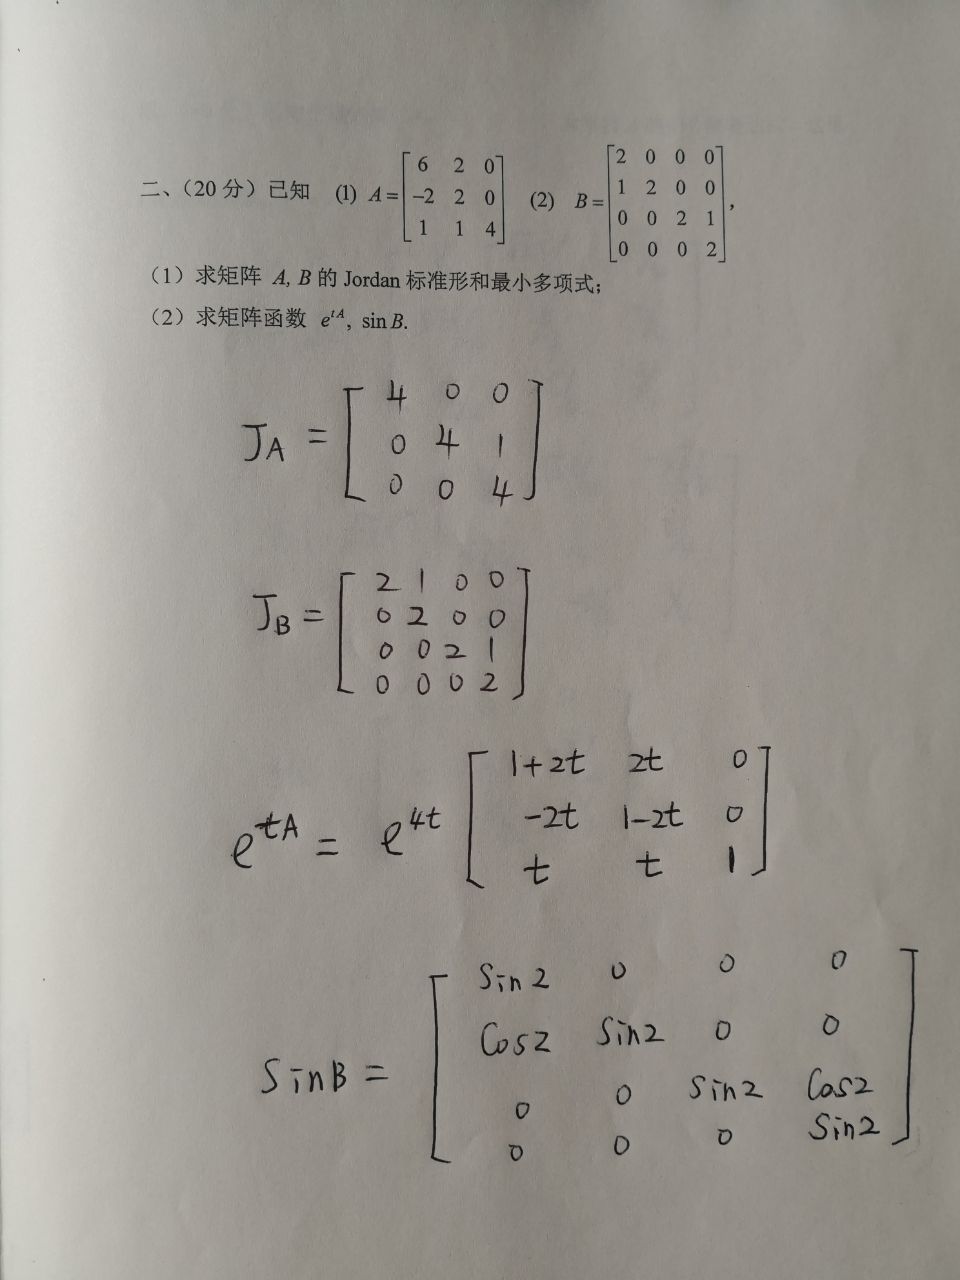 二、（20 分）已知 (1) A = [6 2 0; -2 2 0; 1 1 4] (2) B = [2 0 0 0; 1 2 0 0; 0 0 2 1; 0 0 0 2],
（1）求矩阵 A, B 的 Jordan 标准形和最小多项式；
（2）求矩阵函数 e^{tA}, sin B.
J_A = [4 0 0; 0 4 1; 0 0 4]
J_B = [2 1 0 0; 0 2 0 0; 0 0 2 1; 0 0 0 2]
e^{tA} = e^{4t} [1+2t 2t 0; -2t 1-2t 0; t t 1]
SinB = [Sin2 0 0 0; Cos2 Sin2 0 0; 0 0 Sin2 Cos2; 0 0 0 Sin2]